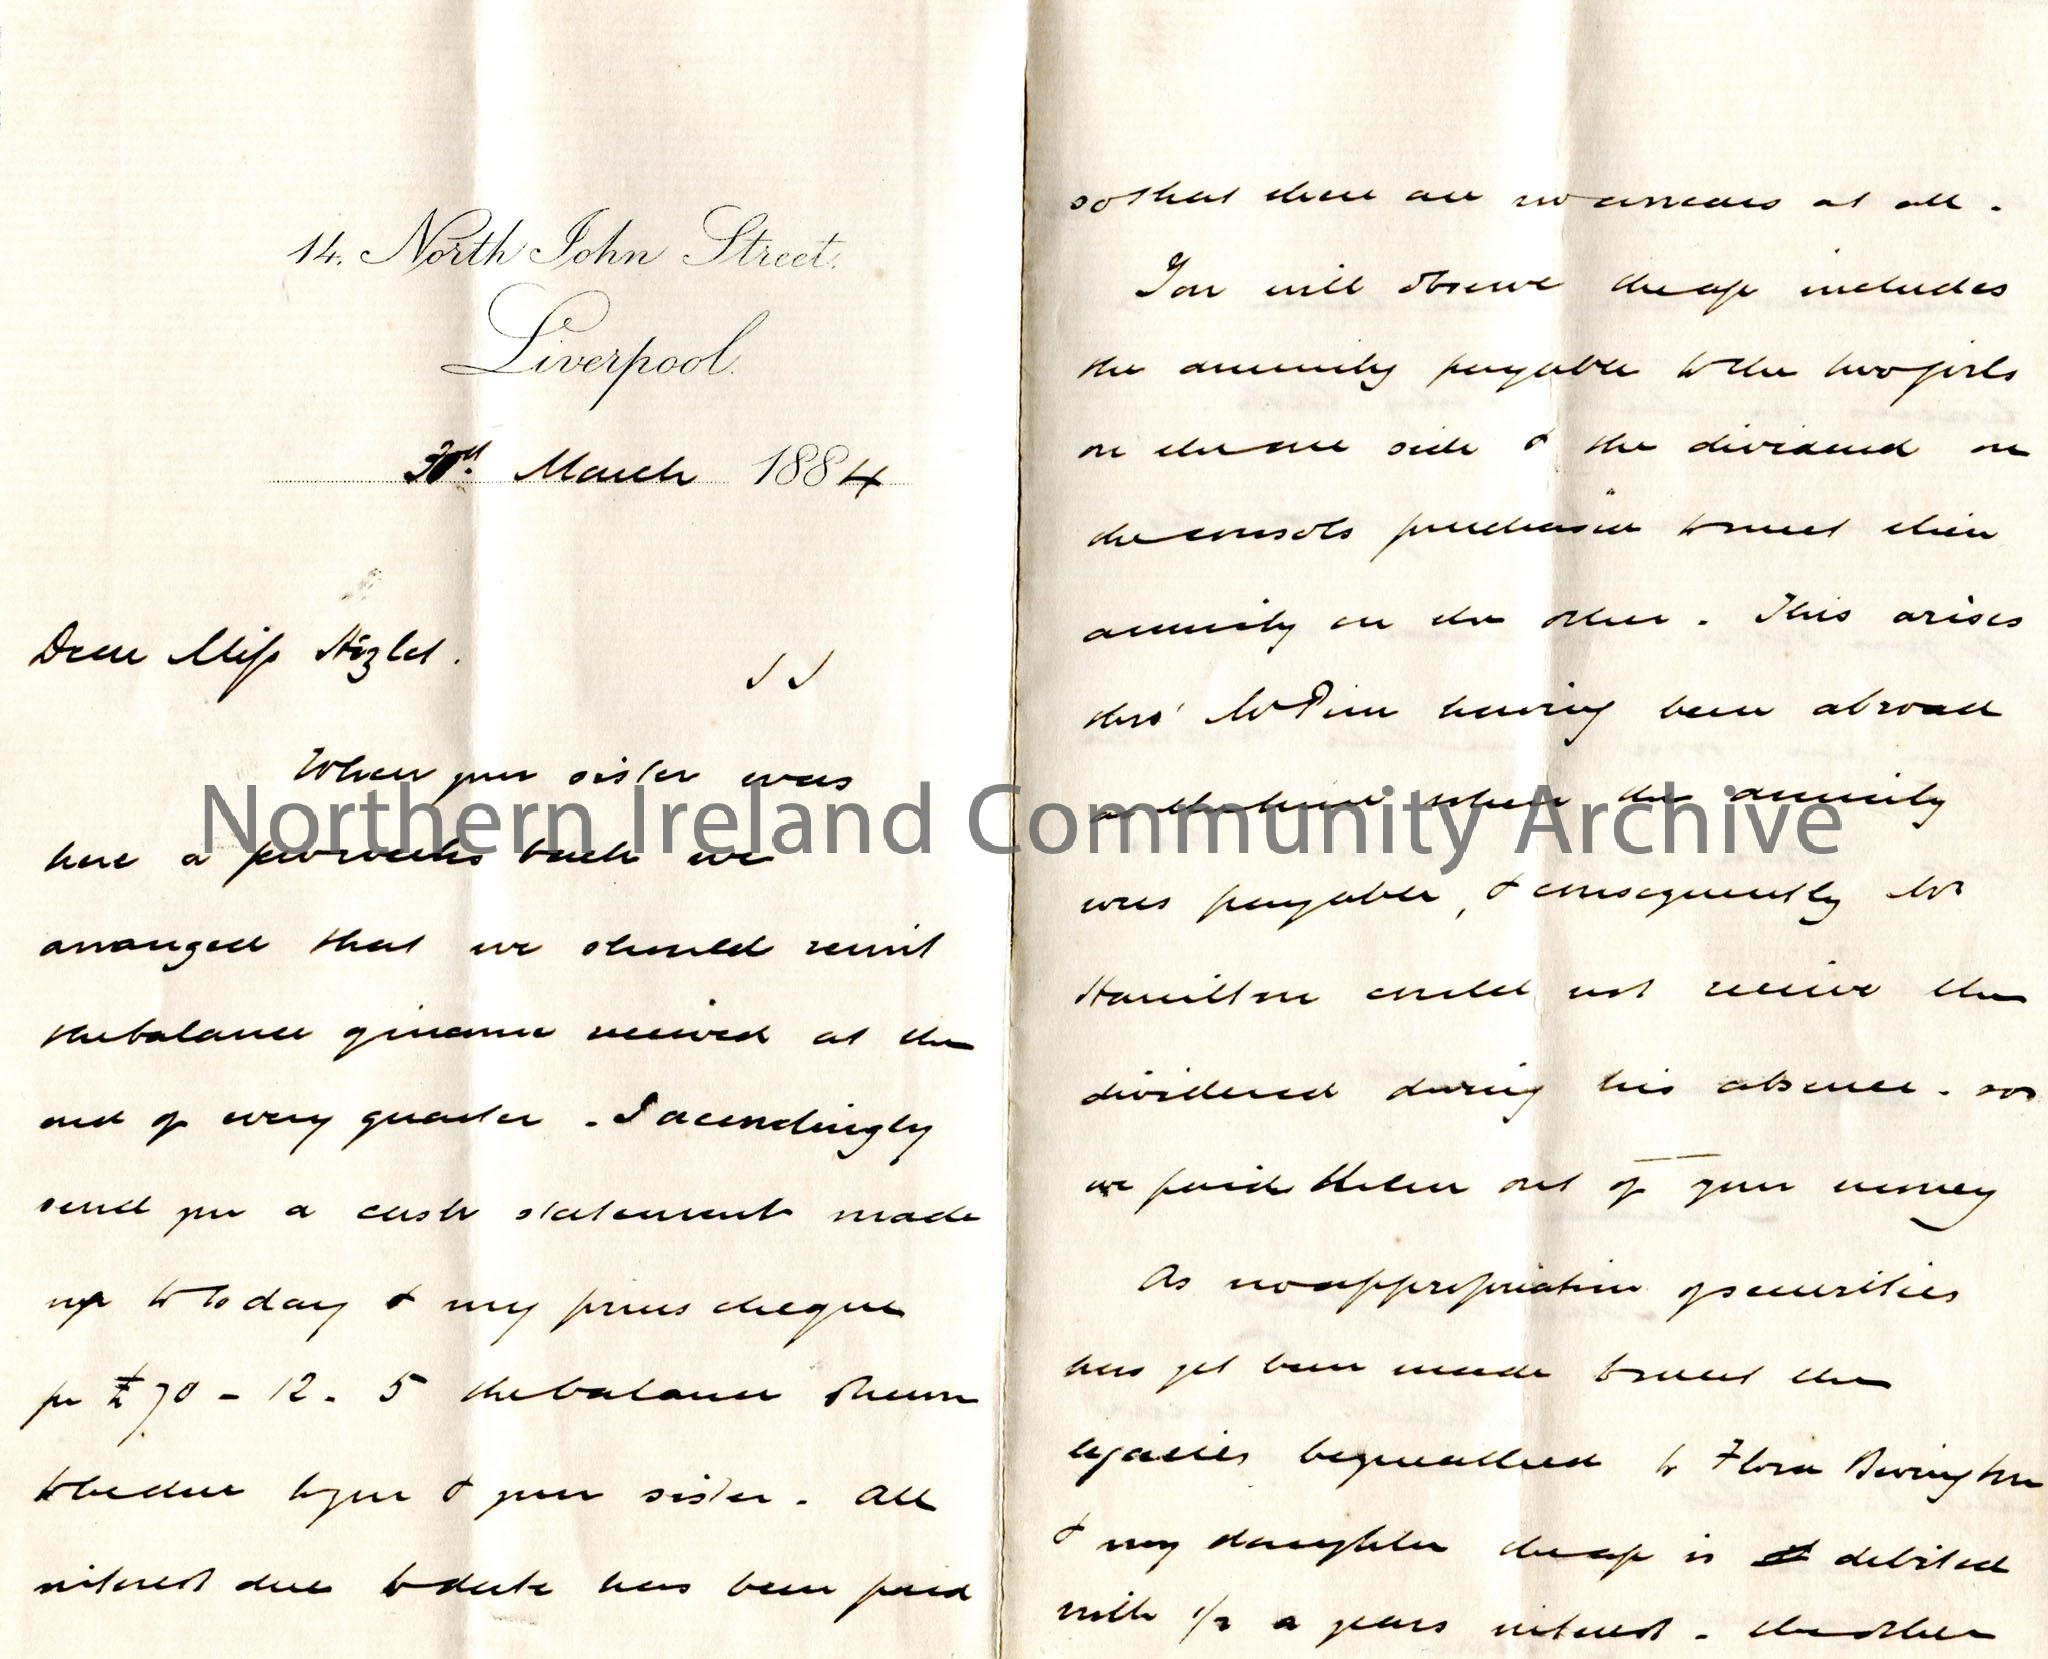 14. North John Street.
Liverpool.
30th March 1884
Dear Miss Hezlet.
When your sister was
here a few weeks back we
arranged that we should remit
the balance of income received at the
end of every quarter. I accordingly
send you a cash statement made
up to today & my firms cheque
for £70-12-5 the balance shewn
to be due to you & your sister. All
interest due to date has been paid
so that there are no arrears at all.
You will observe the a/c includes
the annuity payable to the two girls
on the one side & the dividend on
the consols purchased to meet their
annuity on the other. This arises
thro' Mr Pim having been abroad
at the time when the annuity
was payable, & consequently Mr
Hamilton could not receive the
dividend during his absence. so
we paid them out of your money
As no appropriation of securities
has yet been made to meet the
legacies bequeathed to Flora
& my daughter the a/c is debited
with 1/2 a years interest. the other
Northern Ireland Community Archive